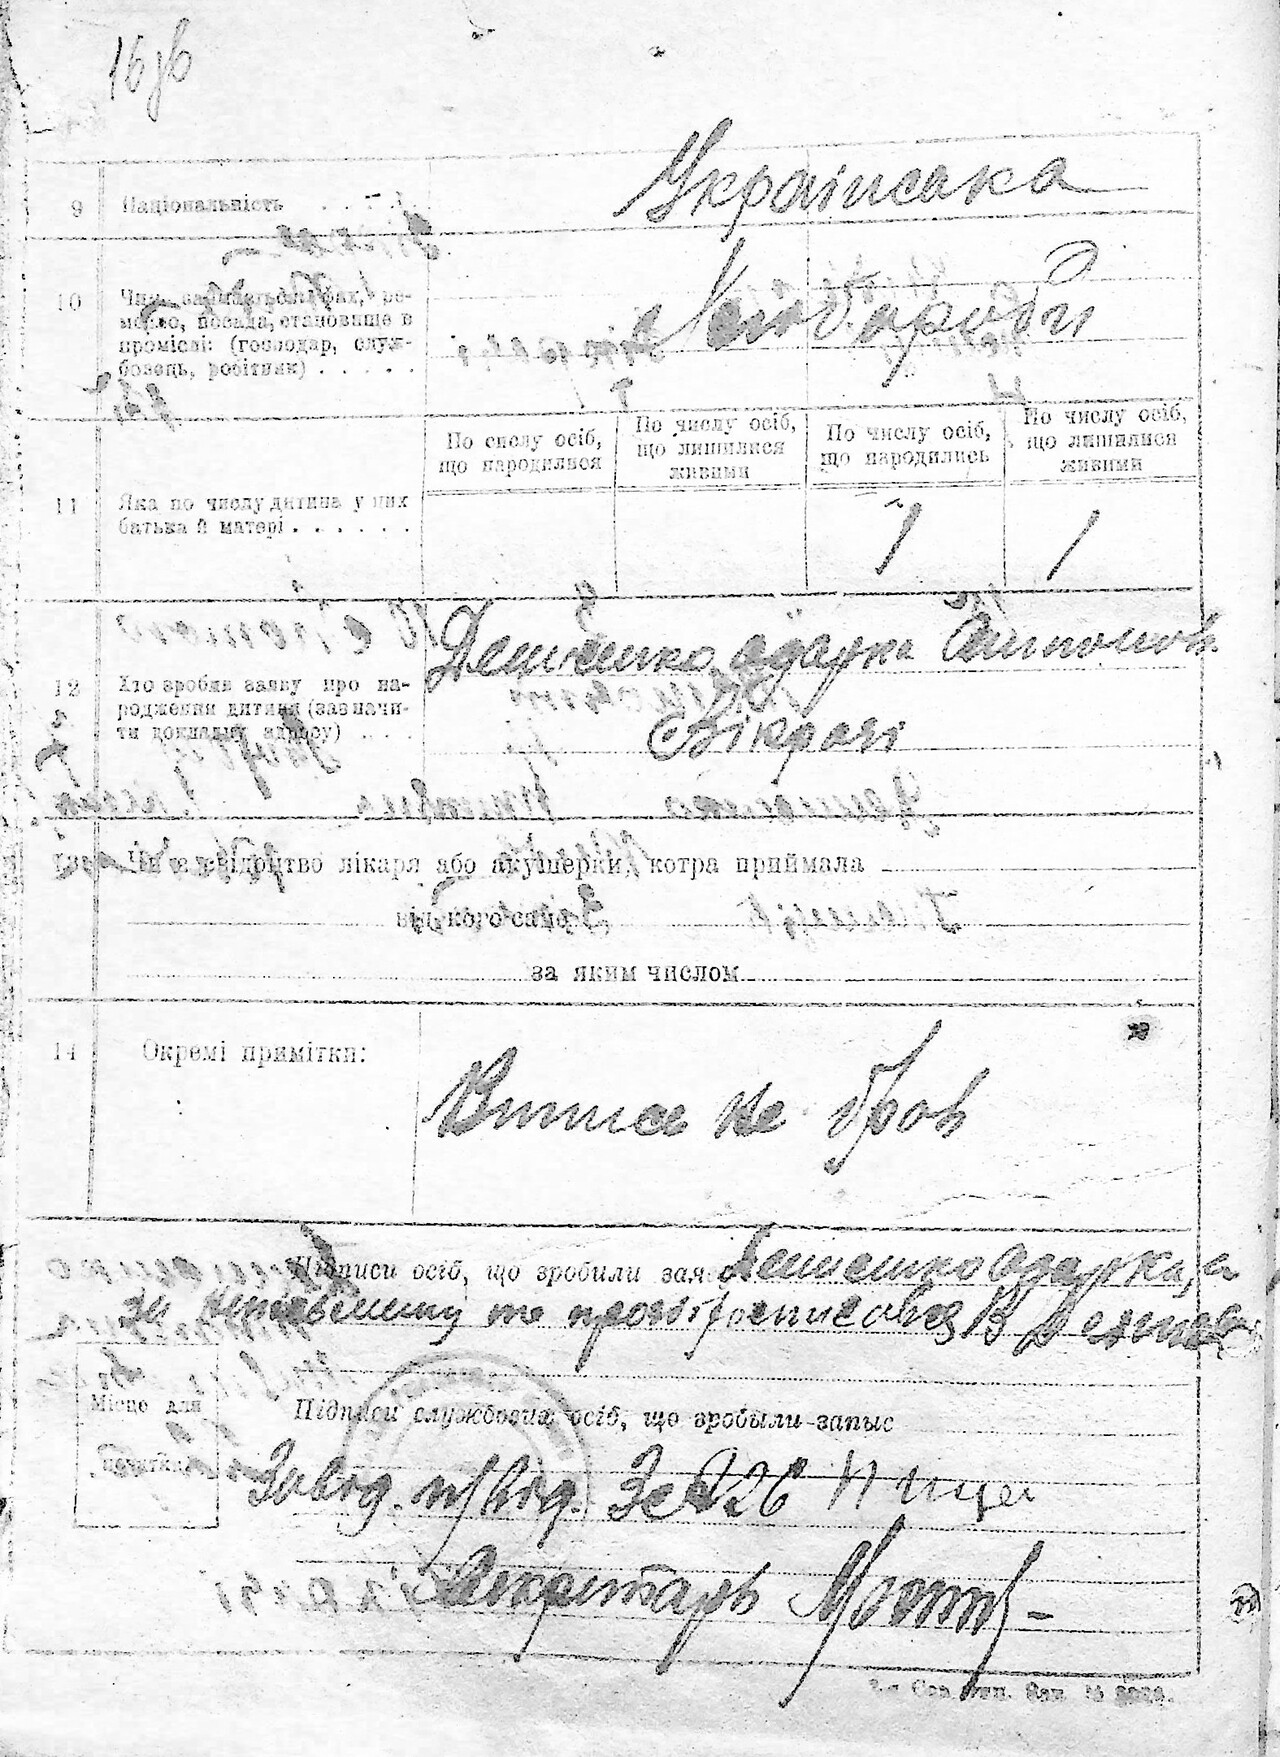 16 зв
9 Національність . . . . Українська
10 Чим займається: фах, ре-
месло, посада, становище в
промислі: (господар, служ-
бовець, робітник) . . . . . Хлібороби
По числу осіб, що народилися
По числу осіб, що лишилися живими
По числу осіб, що народились
По числу осіб, що лишилися живими
11 Яка по числу дитина у цих
батька й матері . . . . . . 1 1
12 Хто зробив заяву про на-
родження дитини (зазначи-
ти докладну адресу) . . . .
Демченко Одарка
Вікрачі
13 Чи є свідоцтво лікаря або акушерки, котра приймала
від кого саме
за яким числом
14 Окремі примітки:
Виписа не брав
Підписи осіб, що зробили заяву Демченко Одарка, а
за неписьмену та прозі росписався В Демченко
Місце для
печатки
Підписи службових осіб, що зробыли запыс
Завід. п/від. ЗАГС
Секретарь